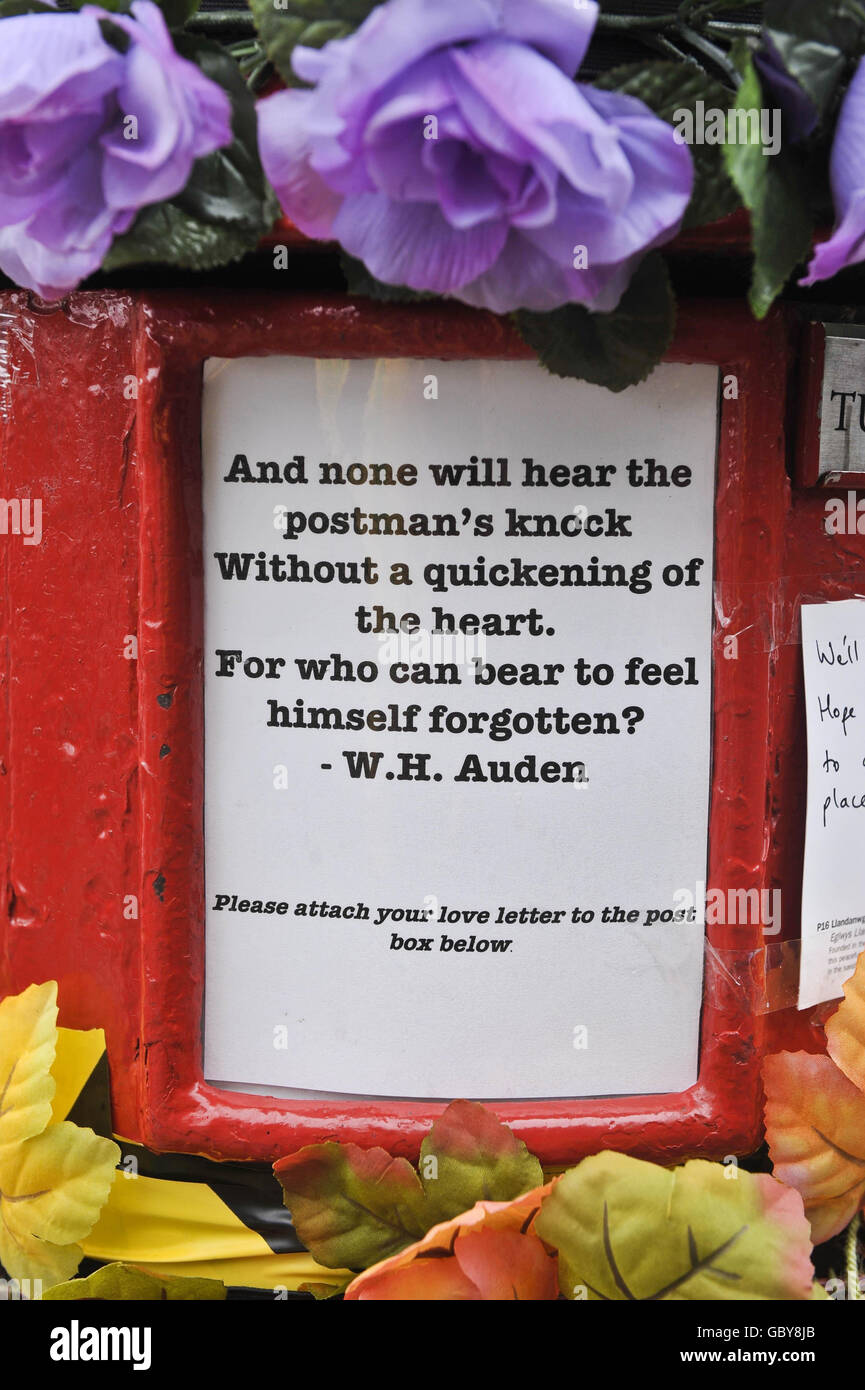 And none will hear the
postman's knock
Without a quickening of
the heart.
For who can bear to feel
himself forgotten?
- W.H. Auden
Please attach your love letter to the post
box below.
TU
We'll
Hope
to
place
P16 Llandanwg
Eglwys Lla
Founded in the
this peacef
in the sand
a alamy stock photo
alamy
Image ID: GBY8JB
www.alamy.com